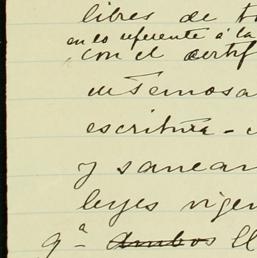 libres de
en lo referente á la
con el certif
escritura - 
y sanea
leyes vige
qª ambos